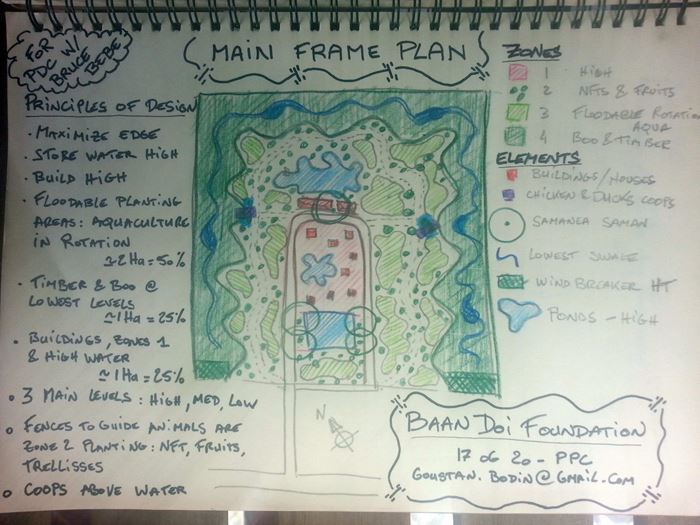 FOR
PDC W/
BRUCE
BEBE
MAIN FRAME PLAN
PRINCIPLES OF DESIGN
· MAXIMIZE EDGE
· STORE WATER HIGH
· BUILD HIGH
· FLOODABLE PLANTING
AREAS: AQUACULTURE
IN ROTATION
≃2Ha=50%
· TIMBER & BOO @
LOWEST LEVELS
≃1Ha=25%
· BUILDINGS, ZONES 1
& HIGH WATER
≃1Ha=25%
o 3 MAIN LEVELS: HIGH, MED, LOW
o FENCES TO GUIDE ANIMALS ARE
ZONE 2 PLANTING: NFT, FRUITS,
TRELLISSES
o COOPS ABOVE WATER
N
ZONES
1 HIGH
2 NFTS & FRUITS
3 FLOODABLE ROTATION
AQUA
4 BOO & TIMBER
ELEMENTS
BUILDINGS/HOUSES
CHICKEN & DUCKS COOPS
SAMANEA SAMAN
LOWEST SWALE
WIND BREAKER HT
PONDS - HIGH
BAAN DOI FOUNDATION
17 06 20 - PPC
GOUSTAN.BODIN@GMAIL.COM